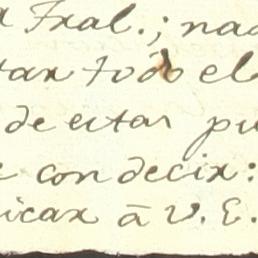 a Fral.; nad
tar todo el
de estas pu
e con decir:
icar ā V. E.